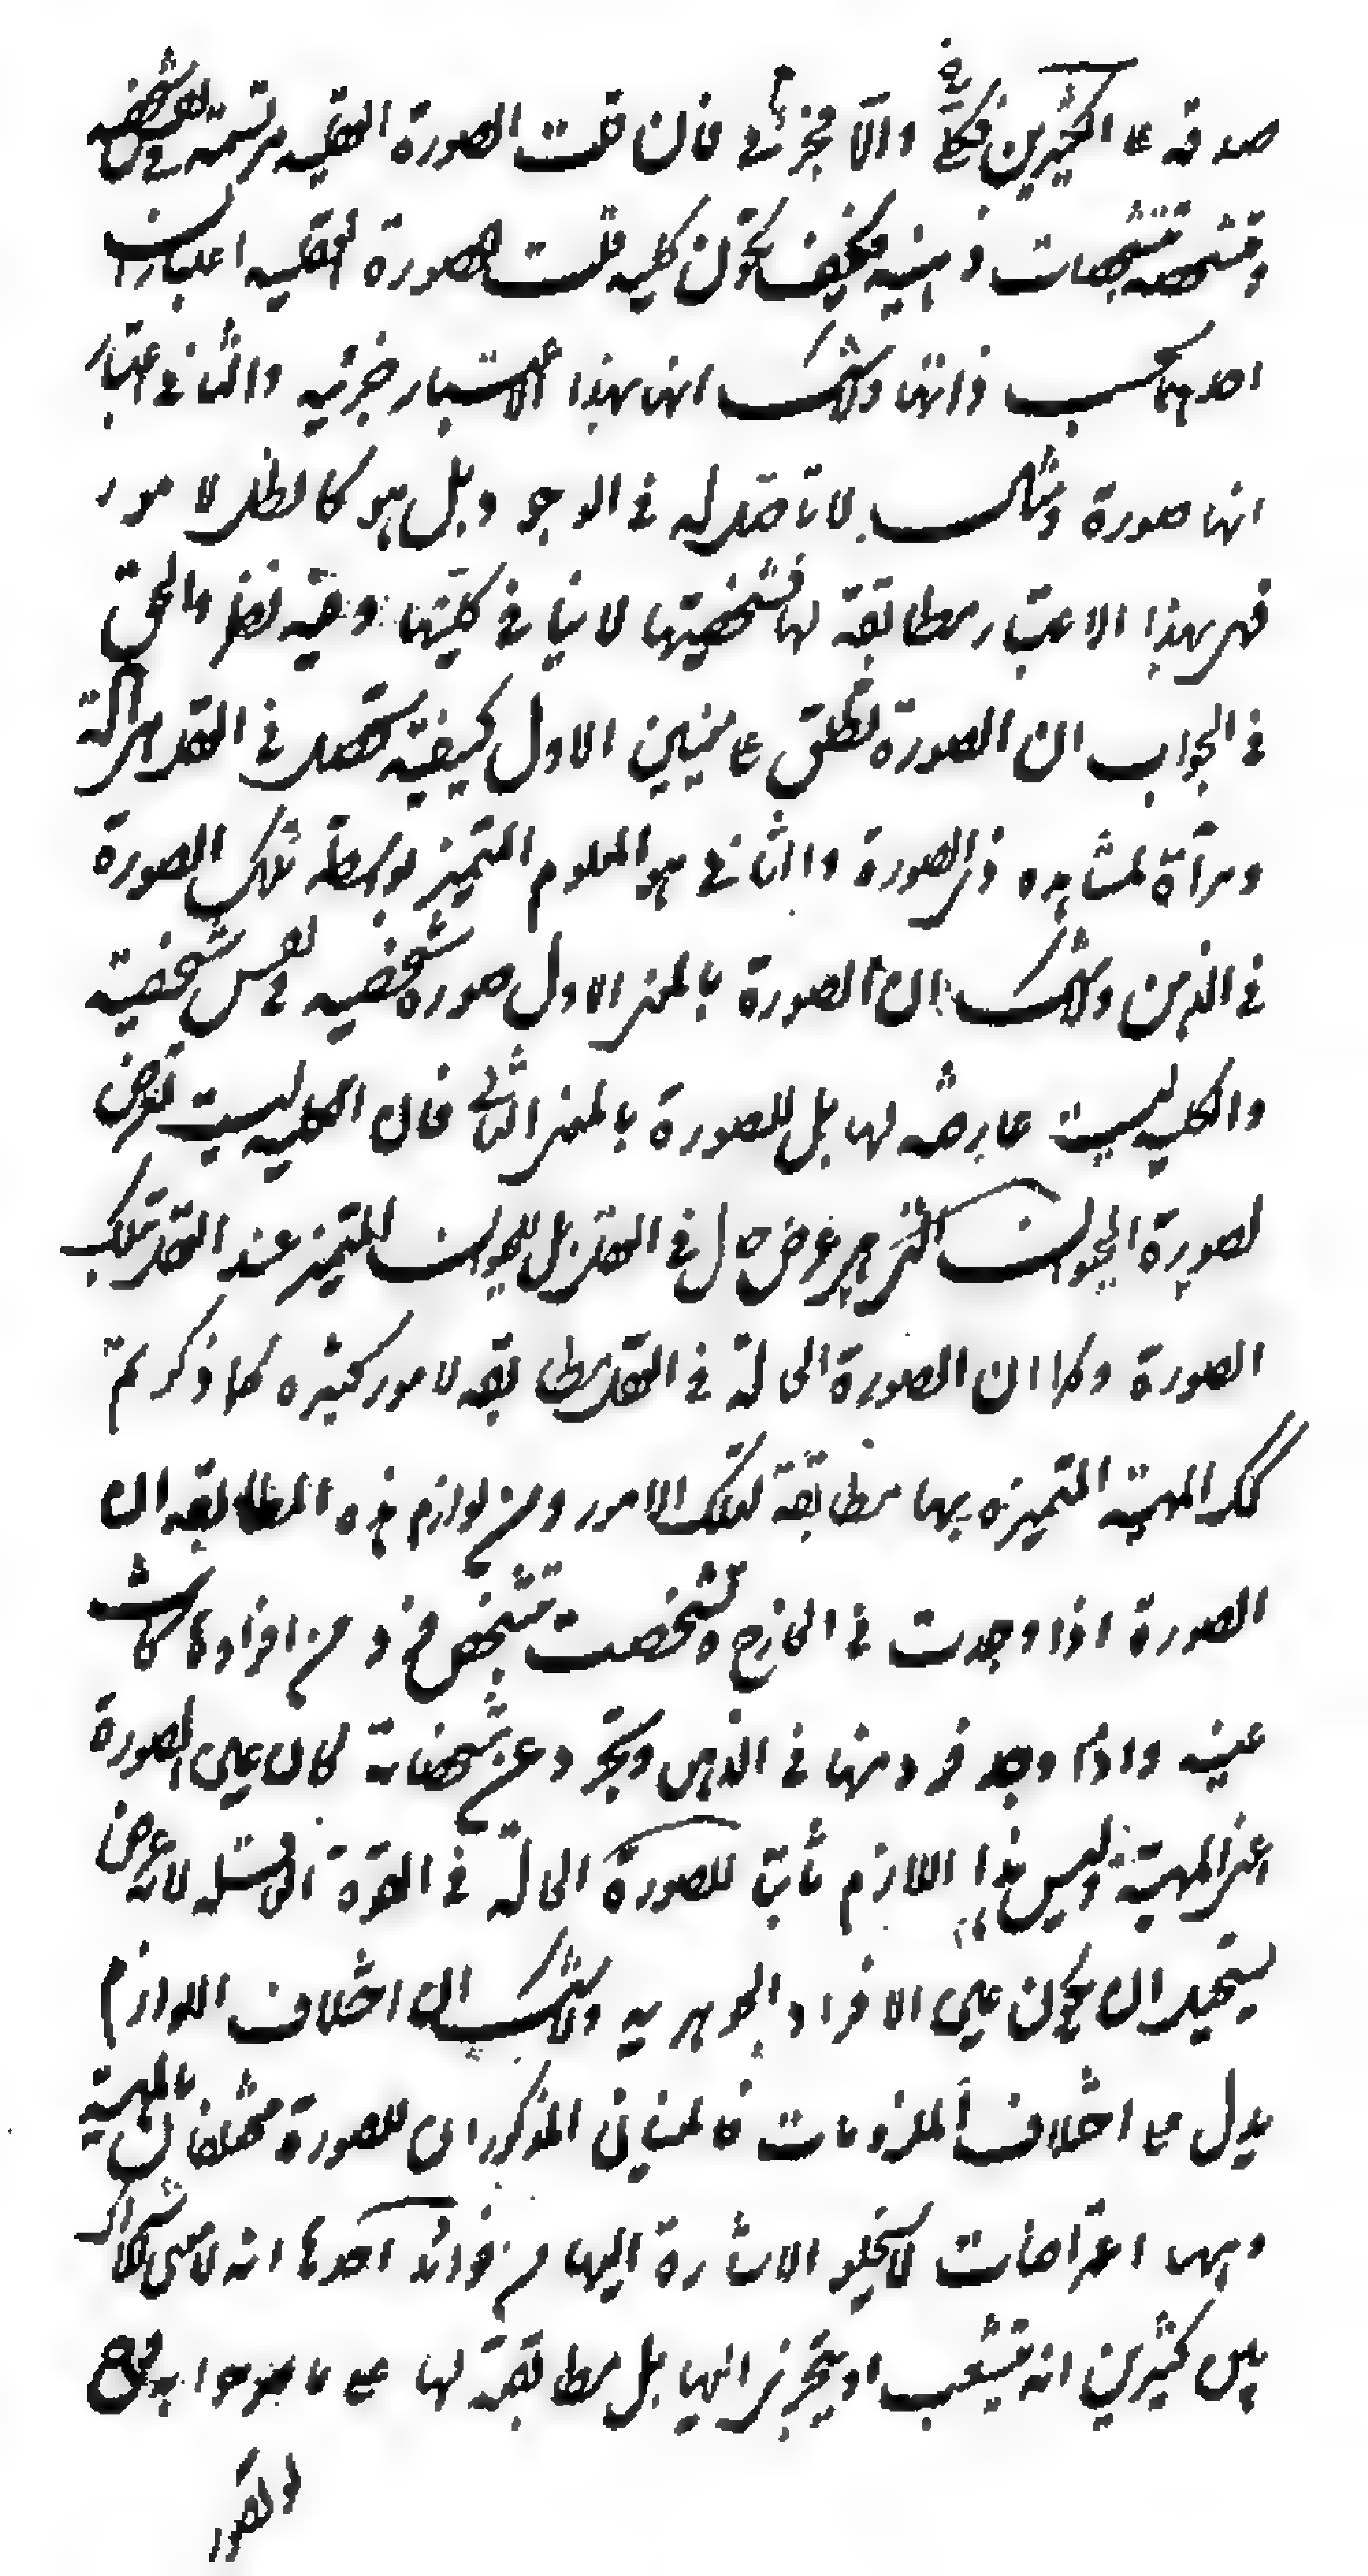 صدقه ع الكثيرين فكلي والا فجزئي فان قلت الصورة العقليه مرتسمة في نفس شخصيه
ومتشخصه بتشخصات ذهنيه فكيف تكون كليه قلت للصورة العقليه اعتباران
احدهما بحسب ذاتها ولاشك انها بهذا الاعتبار جزئيه والثاني اعتبار
انها صورة ومثال لا تاصل له في الوجود بل هو كالظل لامور
فهي بهذا الاعتبار مطابقة لها فشخصيتها لاينافي كليتها وفيه نظر والحق
في الجواب ان الصورة تطلق ع معنيين الاول كيفية تحصل في العقل هي آلة
ومرآة لمشاهده ذي الصورة والثاني هو المعلوم المتميز بواسطة تلك الصورة
في الذهن ولاشك ان الصورة بالمعنى الاول صورة شخصيه في نفس شخصية
والكليه ليست عارضه لها بل للصورة بالمعنى الثاني فان الكليه ليست تعرض
لصورة الحيوان التي هي عرض حال في العقل بل للحيوان المتميز عند العقل بتلك
الصورة وكما ان الصورة الحالة في العقل مطابقه لامور كثيره كما ذكرتم
كك المهية المتميزه بها مطابقة لتلك الامور ومن لوازم هذه المطابقه ان
الصورة اذا وجدت في الخارج وتشخصت بتشخص فرد من افرادها كانت
عينه واذا وجد فرد منها في الذهن وتجرد عن تشخصاته كان عين الصورة
اعني المهية وليس هذا اللازم ثابتا للصورة الحالة في القوة العاقله لانه عرض
يستحيل ان يكون عين الافراد الجوهريه ولاشك ان اختلاف اللوازم
يدل ع اختلاف الملزومات فالمعنيان المذكوران للصورة مختلفان بالمهية
وههنا اعتراضات لايخلو الاشارة اليها من فوائد احدها انه لا معنى للاشتراك
بين كثيرين انه يتشعب او يتجزى اليها بل مطابقة لها ع ما صرحوا به في
الصور